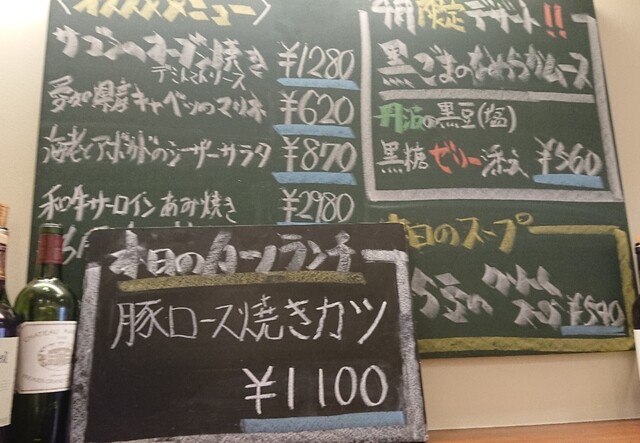 オススメメニュー
サゴシのオーブン焼き
デミトマトソース
¥1280
愛知県産キャベツのマリネ ¥620
海老とアボカドのシーザーサラダ ¥870
和牛サーロインあみ焼き ¥2980
4月限定デザート!!
黒ごまのなめらかムース
丹波の黒豆(塩)
黒糖ゼリー添え ¥560
本日のスープ
クリーム
スープ ¥590
本日の ランチ
豚ロース焼きカツ
¥1100
CHATEAU